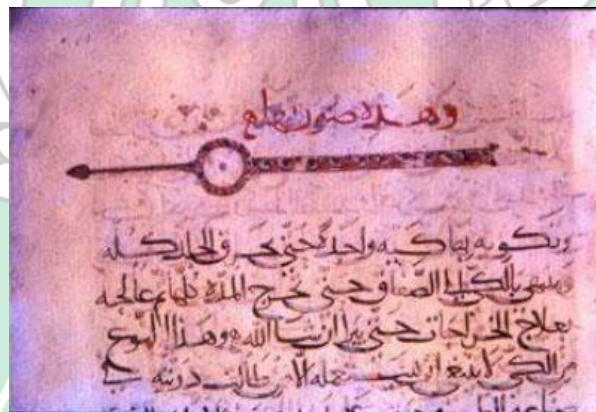 وهذه صورة
وتكويه بها كيه واحدة حتى تحرق الجلد كله
وتنتهي بالكي الى الصفاق حتى تخرج المدة كلها ثم عالجه
بعلاج الخراجات حتى يبرا ان شا الله وهذا النوع
من الكي لا ينبغي ان يستعمله الا من طالت دربته في